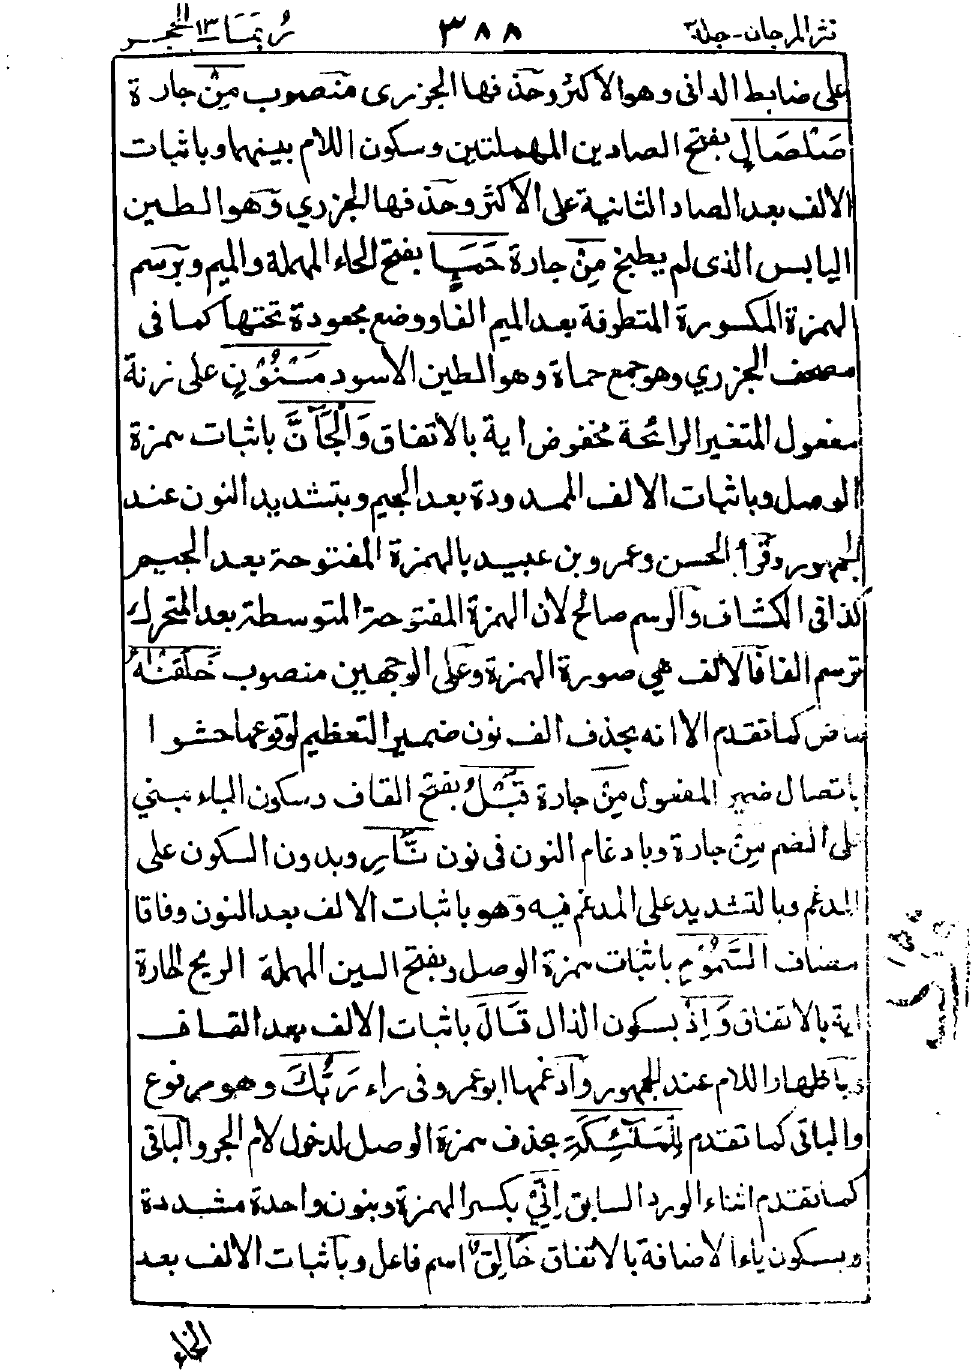 نثر المرجان - جلد٣ ٣٨٨ ربما ١٣ الحجر
على ضابط الدانى وهو الاكثر وحذفها الجزرى منصوب مِنْ جارة
صَلْصَالٍ بفتح الصادين المهملتين وسكون اللام بينهما وباثبات
الالف بعد الصاد الثانية على الاكثر وحذفها الجزري وهو الطين
اليابس الذى لم يطبخ مِنْ جارة حَمَاٍ بفتح الحاء المهملة والميم وبرسم
الهمزة المكسورة المتطرفة بعد الميم الفا ووضع مجعودة تحتها كما فى
مصحف الجزري وهو جمع حماة وهو الطين الاسود مَسْنُوْنٍ على زنة
مفعول المتغير الرائحة مخفوض اية بالاتفاق وَالْجَآنَّ باثبات همزة
الوصل وباثبات الالف الممدودة بعد الجيم وبتشديد النون عند
الجمهور وقرأ الحسن وعمرو بن عبيد بالهمزة المفتوحة بعد الجيم
كذا فى الكشاف والرسم صالح لان الهمزة المفتوحة المتوسطة بعد المتحرك
ترسم الفا فالالف هي صورة الهمزة وعلى الوجهين منصوب خَلَقْنٰهُ
ماض كما تقدم الا انه بحذف الف نون ضمير التعظيم لوقوعها حشوا
باتصال ضمير المفعول مِنْ جارة قَبْلُ بفتح القاف وسكون الباء مبني
على الضم مِنْ جارة وبادغام النون فى نون نَّارِ وبدون السكون على
المدغم وبالتشديد على المدغم فيه وهو باثبات الالف بعد النون وفاقا
مضاف السَّمُوْمِ باثبات همزة الوصل وبفتح السين المهملة الريح الحارة
اية بالاتفاق وَاِذْ بسكون الذال قَالَ باثبات الالف بعد القاف
وباظهار اللام عند الجمهور وادغمها ابو عمرو فى راء رَبُّكَ وهو مرفوع
والباقى كما تقدم لِلْمَلٰٓئِكَةِ بحذف همزة الوصل لدخول لام الجر والباقى
كما تقدم اثناء الورد السابق اِنِّيْ بكسر الهمزة وبنون واحدة مشددة
وبسكون ياء الاضافة بالاتفاق خَالِقٌ اسم فاعل وباثبات الالف بعد
الخاء